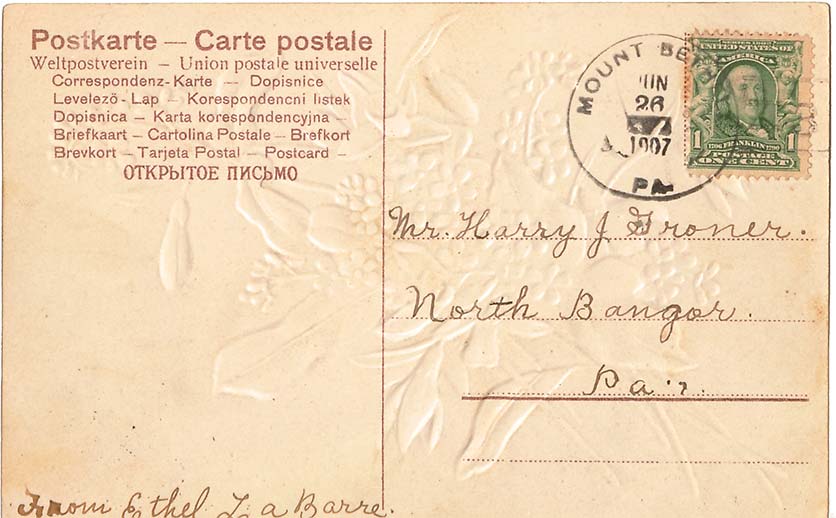 Postkarte — Carte postale
Weltpostverein — Union postale universelle
Correspondenz-Karte — Dopisnice
Levelező-Lap — Korespondencni lístek
Dopisnica — Karta korespondencyjna —
Briefkaart — Cartolina Postale — Brefkort
Brevkort — Tarjeta Postal — Postcard —
ОТКРЫТОЕ ПИСЬМО
MOUNT BETH
JUN
26
1907
PA
SERIES 1902
UNITED STATES OF
AMERICA
1706 FRANKLIN 1790
1 POSTAGE 1
ONE CENT
Mr. Harry J Groner.
North Bangor.
Pa.
From Ethel La Barre.